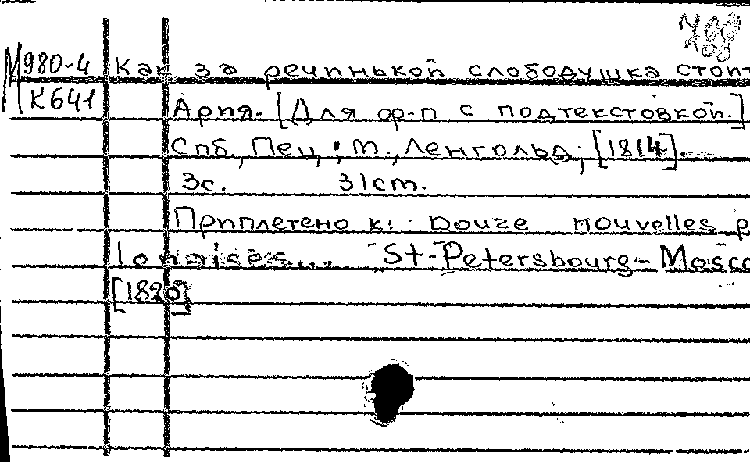 708
М980-4 Как за речинькой слободушка стоит
К641 Ария. [Для ф-п с подтекстовкой.]
Спб, Пец; М., Ленгольд, [1814].
3с. 31cm.
Приплетено к: Douze nouvelles p
lonaises... St-Petersbourg-Mosco
[1820]